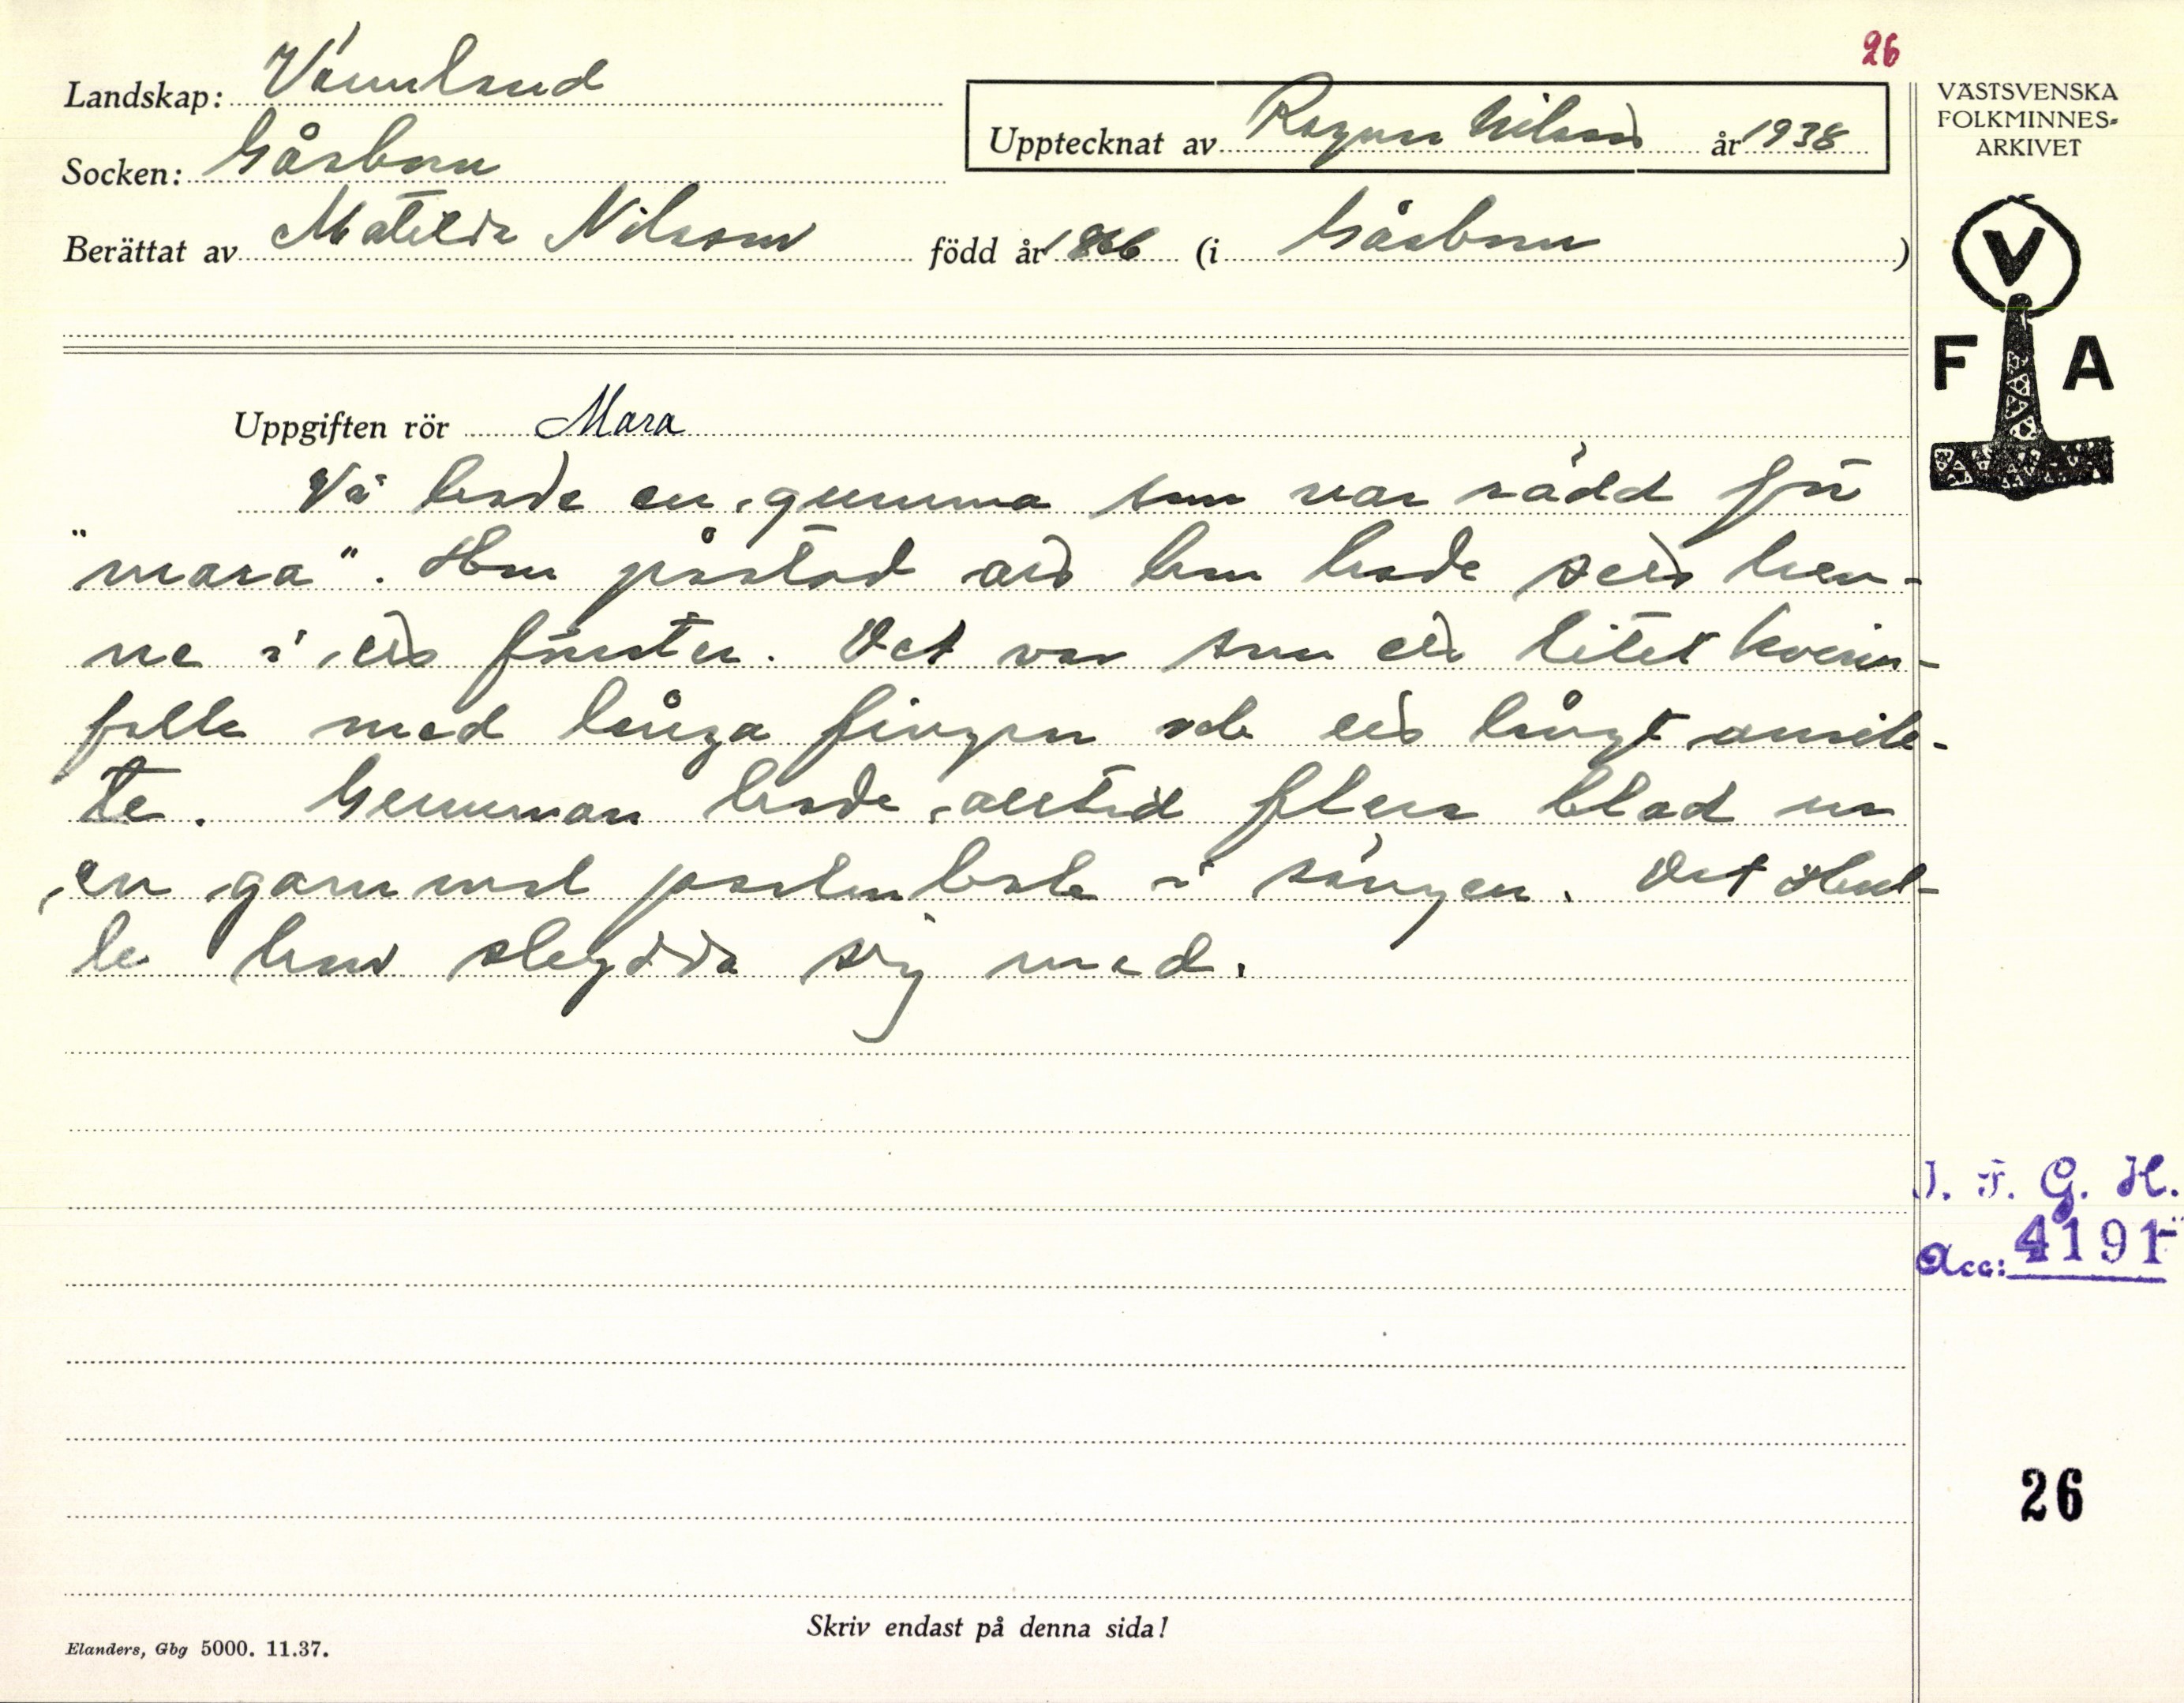 26
Landskap: Värmland
Socken: Gåsborn
Upptecknat av Ragnar Nilsson år 1938
Berättat av Matilda Nilsson född år 1866 (i Gåsborn)
VÄSTSVENSKA
FOLKMINNES-
ARKIVET
V
F A
Uppgiften rör Mara
Vi hade en gumma som var rädd för
"mara". Hon påstod att hon hade sett hen-
ne i ett fönster. Det var som ett litet kvinn-
folk med långa fingrar och ett långt ansik-
te. Gumman hade alltid flera blad ur
en gammal psalmbok i sängen. Det skul-
le hon skydda sig med.
I. F. G. H.
Acc: 4191
26
Skriv endast på denna sida!
Elanders, Gbg 5000. 11.37.